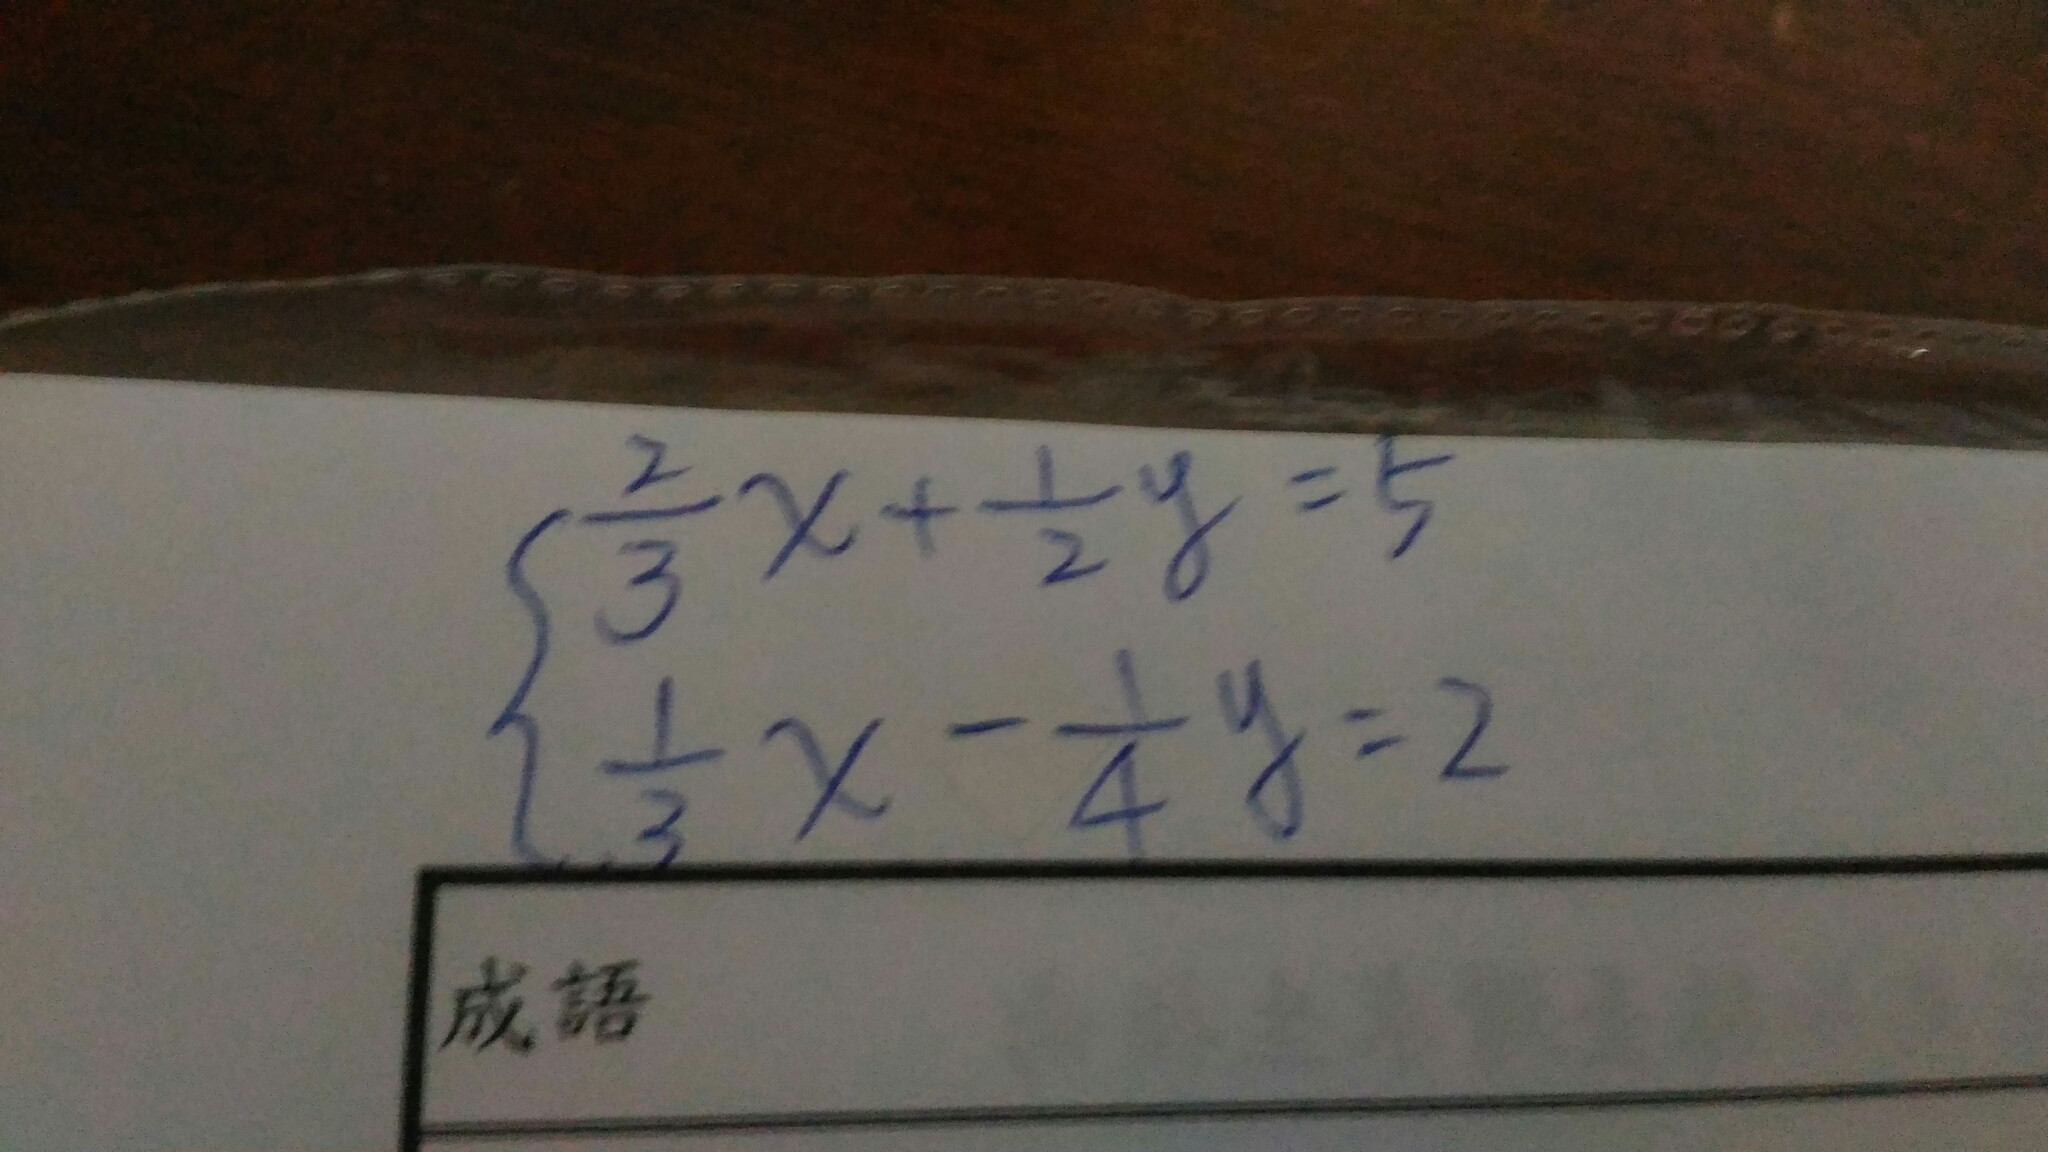 2/3 x + 1/2 y = 5
1/3 x - 1/4 y = 2
成語